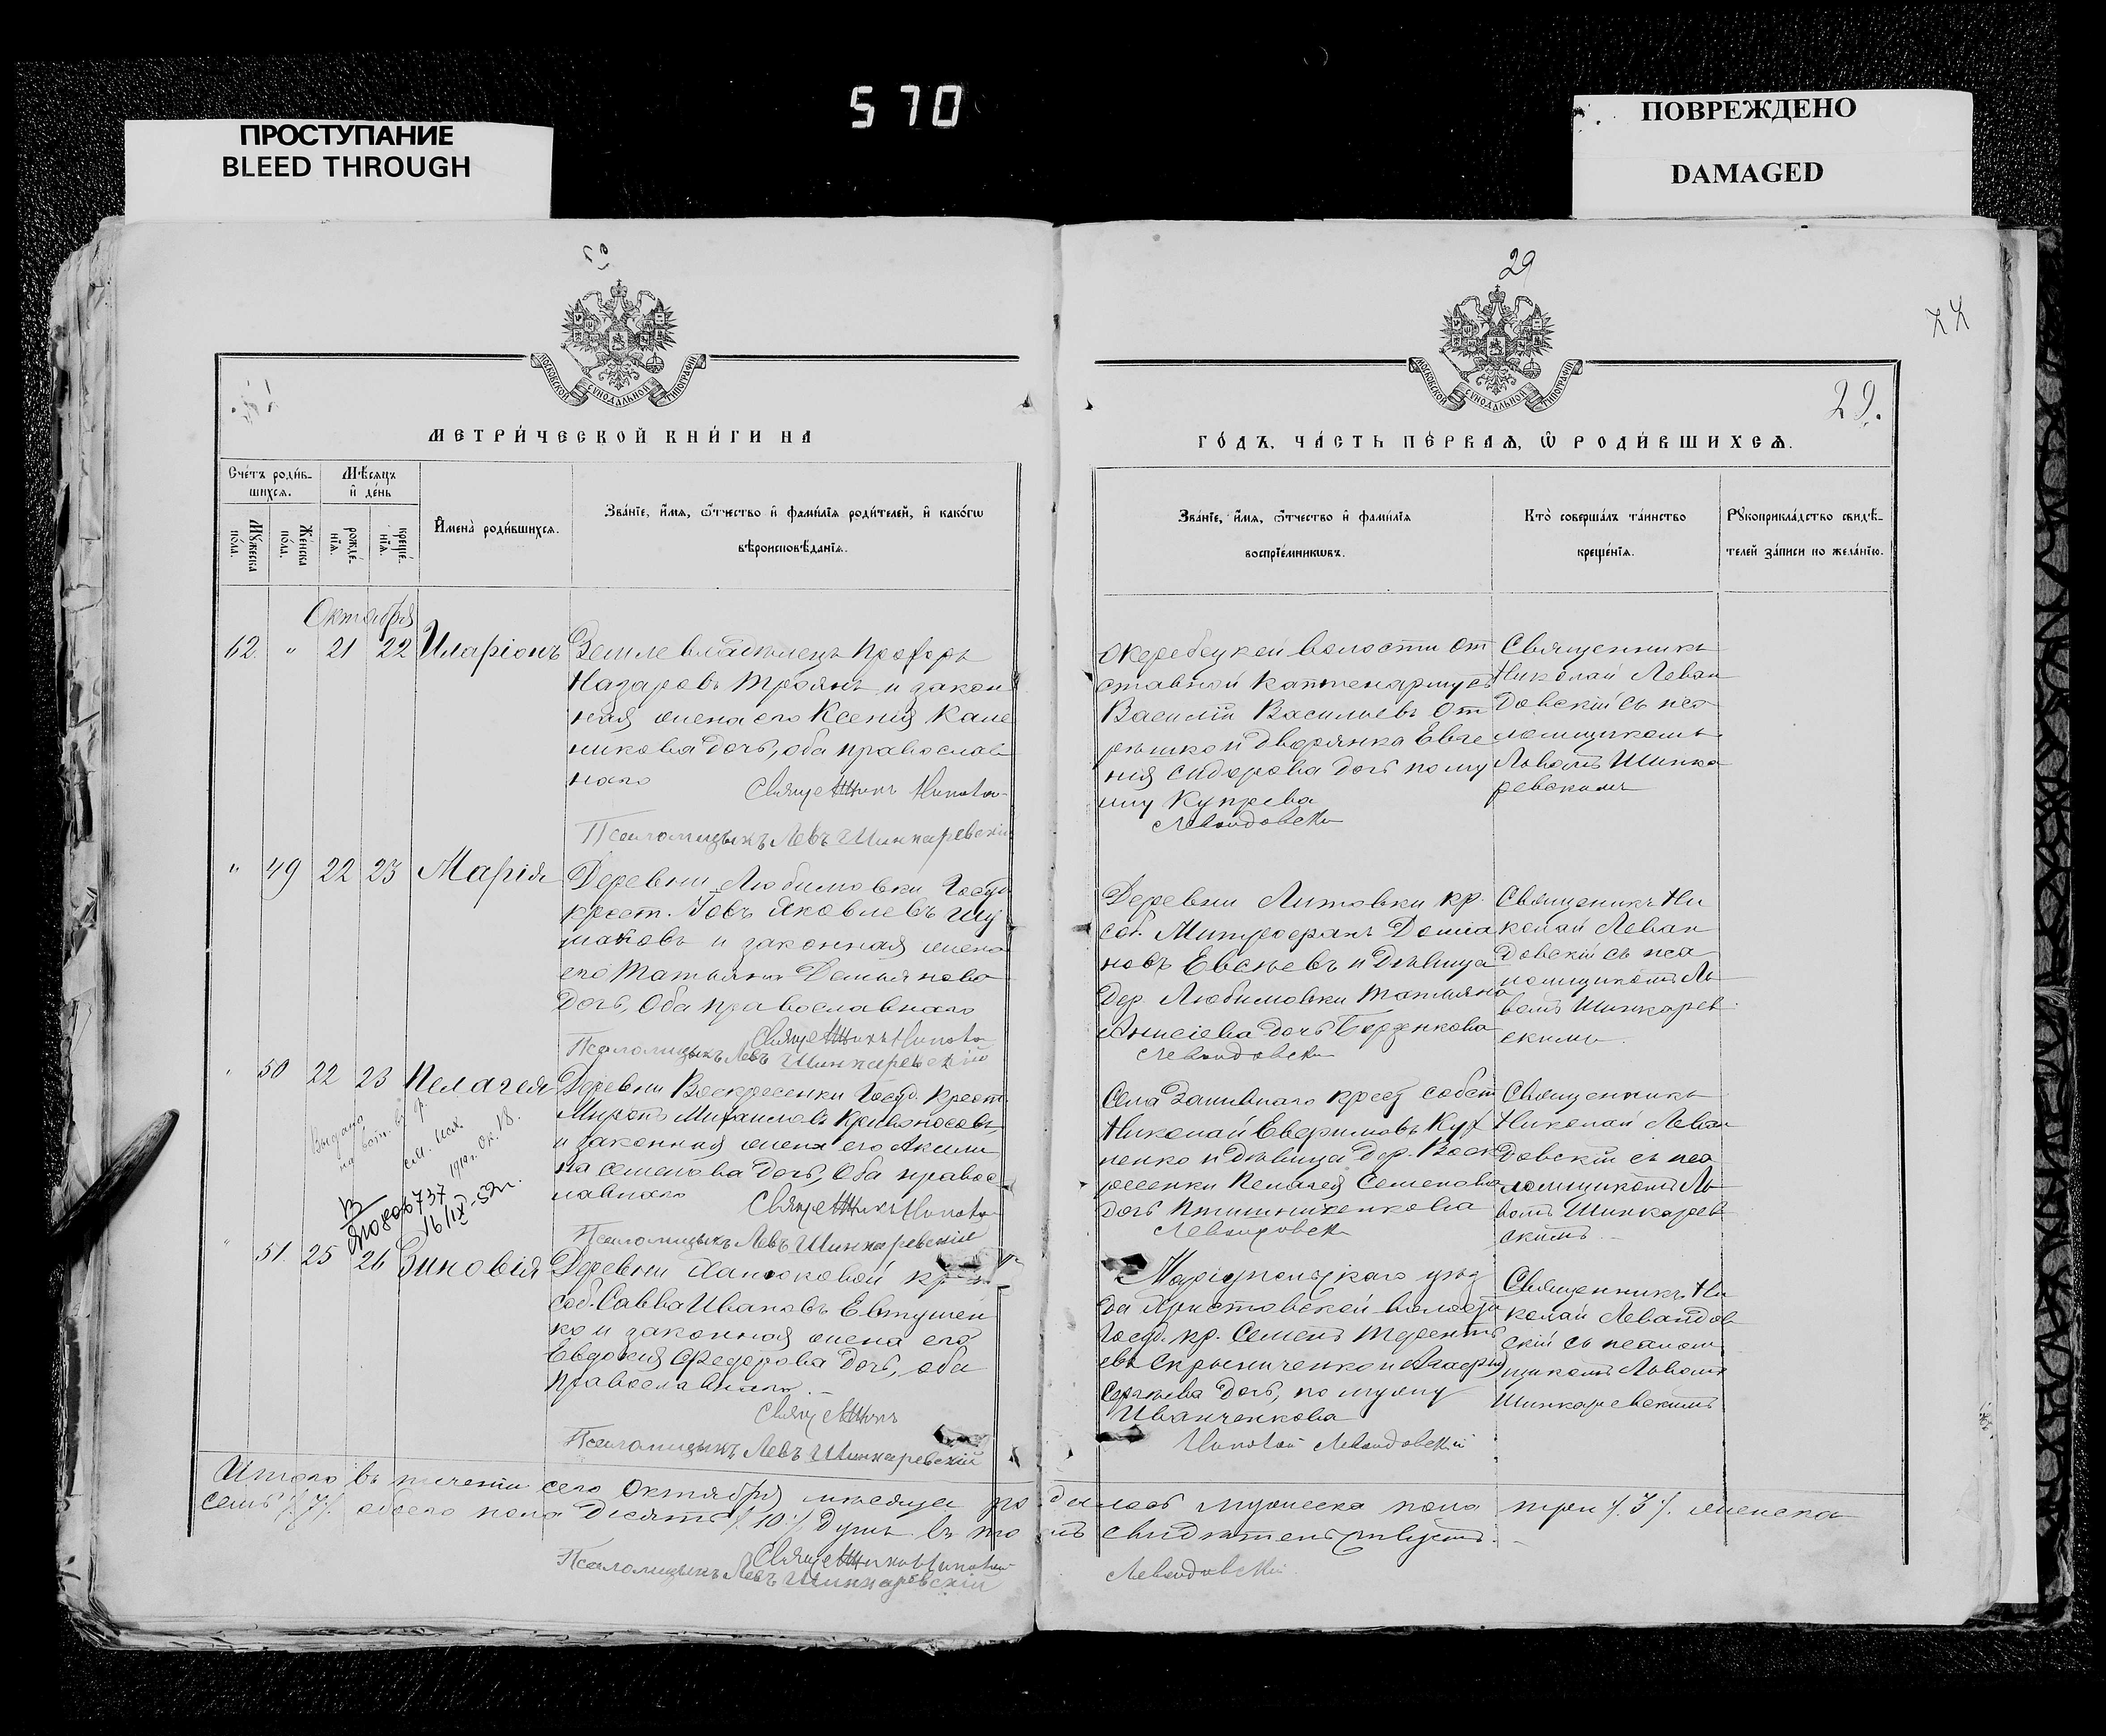 570
ПРОСТУПАНИЕ
BLEED THROUGH
ПОВРЕЖДЕНО
DAMAGED
29
29.
МОСКОВСКОЙ СѴНОДАЛЬНОЙ ТИПОГРАФІИ
МОСКОВСКОЙ СѴНОДАЛЬНОЙ ТИПОГРАФІИ
МЕТРИ́ЧЕСКОЙ КНИ́ГИ НА
ГО́ДЪ, ЧА́СТЬ ПЕ́РВАѦ, Ѽ РОДИ́ВШИХСѦ.
Сче́тъ роди́в-
шихсѧ.
Мѣ́сѧцъ
и҆ де́нь
Мꙋ́жеска
по́ла.
Же́нска
по́ла.
рожде́-
нїѧ.
креще́-
нїѧ.
И҆мена̀ роди́вшихсѧ.
Зва́нїе, и҆́мѧ, ѻ҆́тчество и҆ фами́лїѧ роди́телей, и҆ како́гѡ
вѣроисповѣ́данїѧ.
Зва́нїе, и҆́мѧ, ѻ҆́тчество и҆ фами́лїѧ
воспрїе́мникѡвъ.
Кто̀ соверша́лъ та́инство
креще́нїѧ.
Рꙋкоприкла́дство свидѣ́-
телей за́писи по жела́нїю.
Октября
62. " 21 22 Иларіонъ
Землевладѣлецъ Прохоръ
Назаровъ Троянъ и закон
ная жена его Ксенія Кале
никова дочь, оба православ
наго
Священникъ Николай
Псаломщикъ Левъ Шинкаревскій
волости от
ставной
Василій Васильевъ От
и дворянка Евге
нія Сидорова дочь по му
жу Купрева
Левандовскій
Священникъ
Николай Леван
довскій съ пса
ломщикомъ
Львомъ Шинка
ревскимъ
" 49 22 23 Марія
Деревни Любимовки Госуд
крест. Іовъ Яковлевъ Шу
маковъ и законная жена
его Татьяна Демьянова
дочь, Оба православнаго
Священникъ Николай
Псаломщикъ Левъ Шинкаревскій
Деревни Литовки кр.
соб. Митрофанъ Доміа
новъ Евсѣевъ и дѣвица
дер. Любимовки Татьяна
Анисіева дочь Берзенкова
Левандовскій
Священникъ Ни
колай Леван
довскій съ пса
ломщикомъ Ль
вомъ Шинкарев
скимъ
" 50 22 23 Пелагея
Деревни Воскресенки Госуд. Крест.
Миронъ Михаиловъ Кривоносовъ,
и законная жена его Акили
на Семенова дочь, Оба правос
лавнаго
Священникъ Николай
Псаломщикъ Левъ Шинкаревскій
Села крест собст
Николай Ефимовъ Кух
ненко и дѣвица Дер. Воск
ресенки Пелагея Семенова
дочь
Левандовскій
Священникъ
Николай Леван
довскій съ пса
ломщикомъ Ль
вомъ Шинкарев
скимъ
Выдано
16/IX-52г.
" 51. 25 26 Зиновія
Деревни Ханюковой
соб. Савва Ивановъ Евтушен
ко и законная жена его
Евдокія Федорова дочь, оба
православнаго.
Священникъ
Псаломщикъ Левъ Шинкаревскій
Маріупольскаго уѣз
да волости
Госуд. кр. Семенъ Терентъ
евъ Скрыниченко и Агафья
Сергѣева дочь, по мужу
Иванченкова
Николай Левандовскій
Священникъ Ни
колай Левандов
скій съ псалом
щикомъ Львомъ
Шинкаревскимъ
Итого въ теченіи сего Октября мѣсяца родилось мужеска пола три /.3/. женска
семь /.7/. обоего пола Десять /.10./ душъ въ томъ свидѣтельствуемъ.
Священникъ Николай Левандовскій
Псаломщикъ Левъ Шинкаревскій